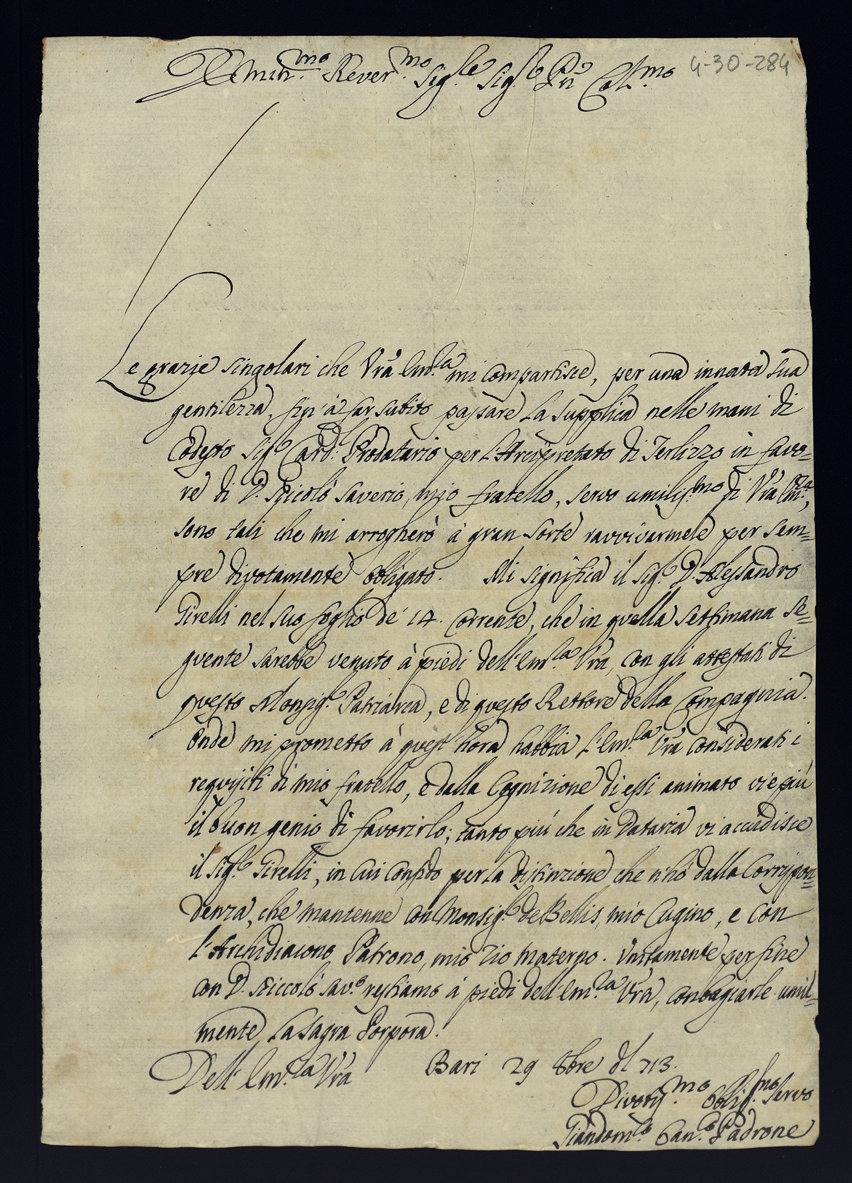 Emin.mo Rever.mo Sig.re Sig.re P.rn Col.mo 4-30-284
Le grazie singolari che Vrã Em.za mi compartisce, per una innata sua
gentilezza, sin' à far subito passare la supplica nelle mani di
codesto Sig.r Card.l Prodatario per l'Arcipretato di Terlizzo in favo=
re di D. Niccolò Saverio, mio fratello, servo umilis.mo di Vrã Em.za,
sono tali che mi arrogherò à gran sorte ravvivarmele per sem=
pre divotamente obligato. Mi significa il Sig.r D. Alessandro
Girelli nel suo foglio de' 14. corrente, che in quella settimana se=
guente sarebbe venuto à piedi dell'Em.za Vrã, con gli attestati di
questo Monsig.r Patriarca, e di questo Rettore della Compagnia.
Onde mi prometto à quest'hora habbia l'Em.za Vrã considerati i
requisiti di mio fratello, e dalla cognizione di essi animato vie più
il buon genio di favorirlo; tanto più che in Dataria vi accudisce
il Sig.r Girelli, in cui confido per la distinzione che n'hò dalla corrispon=
denza, che mantenne con Monsig.r de Bellis, mio Cugino, e con
l'Archidiacono Patrono, mio Zio materno. Unitamente per fine
con D. Niccolò Sav.o restiamo à piedi dell'Em.za Vrã, con baciarle umil=
mente la sagra Porpora.
Dell'Em.za Vrã Bari 29 8bre del 713.
Divotis.mo Oblig.mo Servo
Giandom.co Can.co Padrone